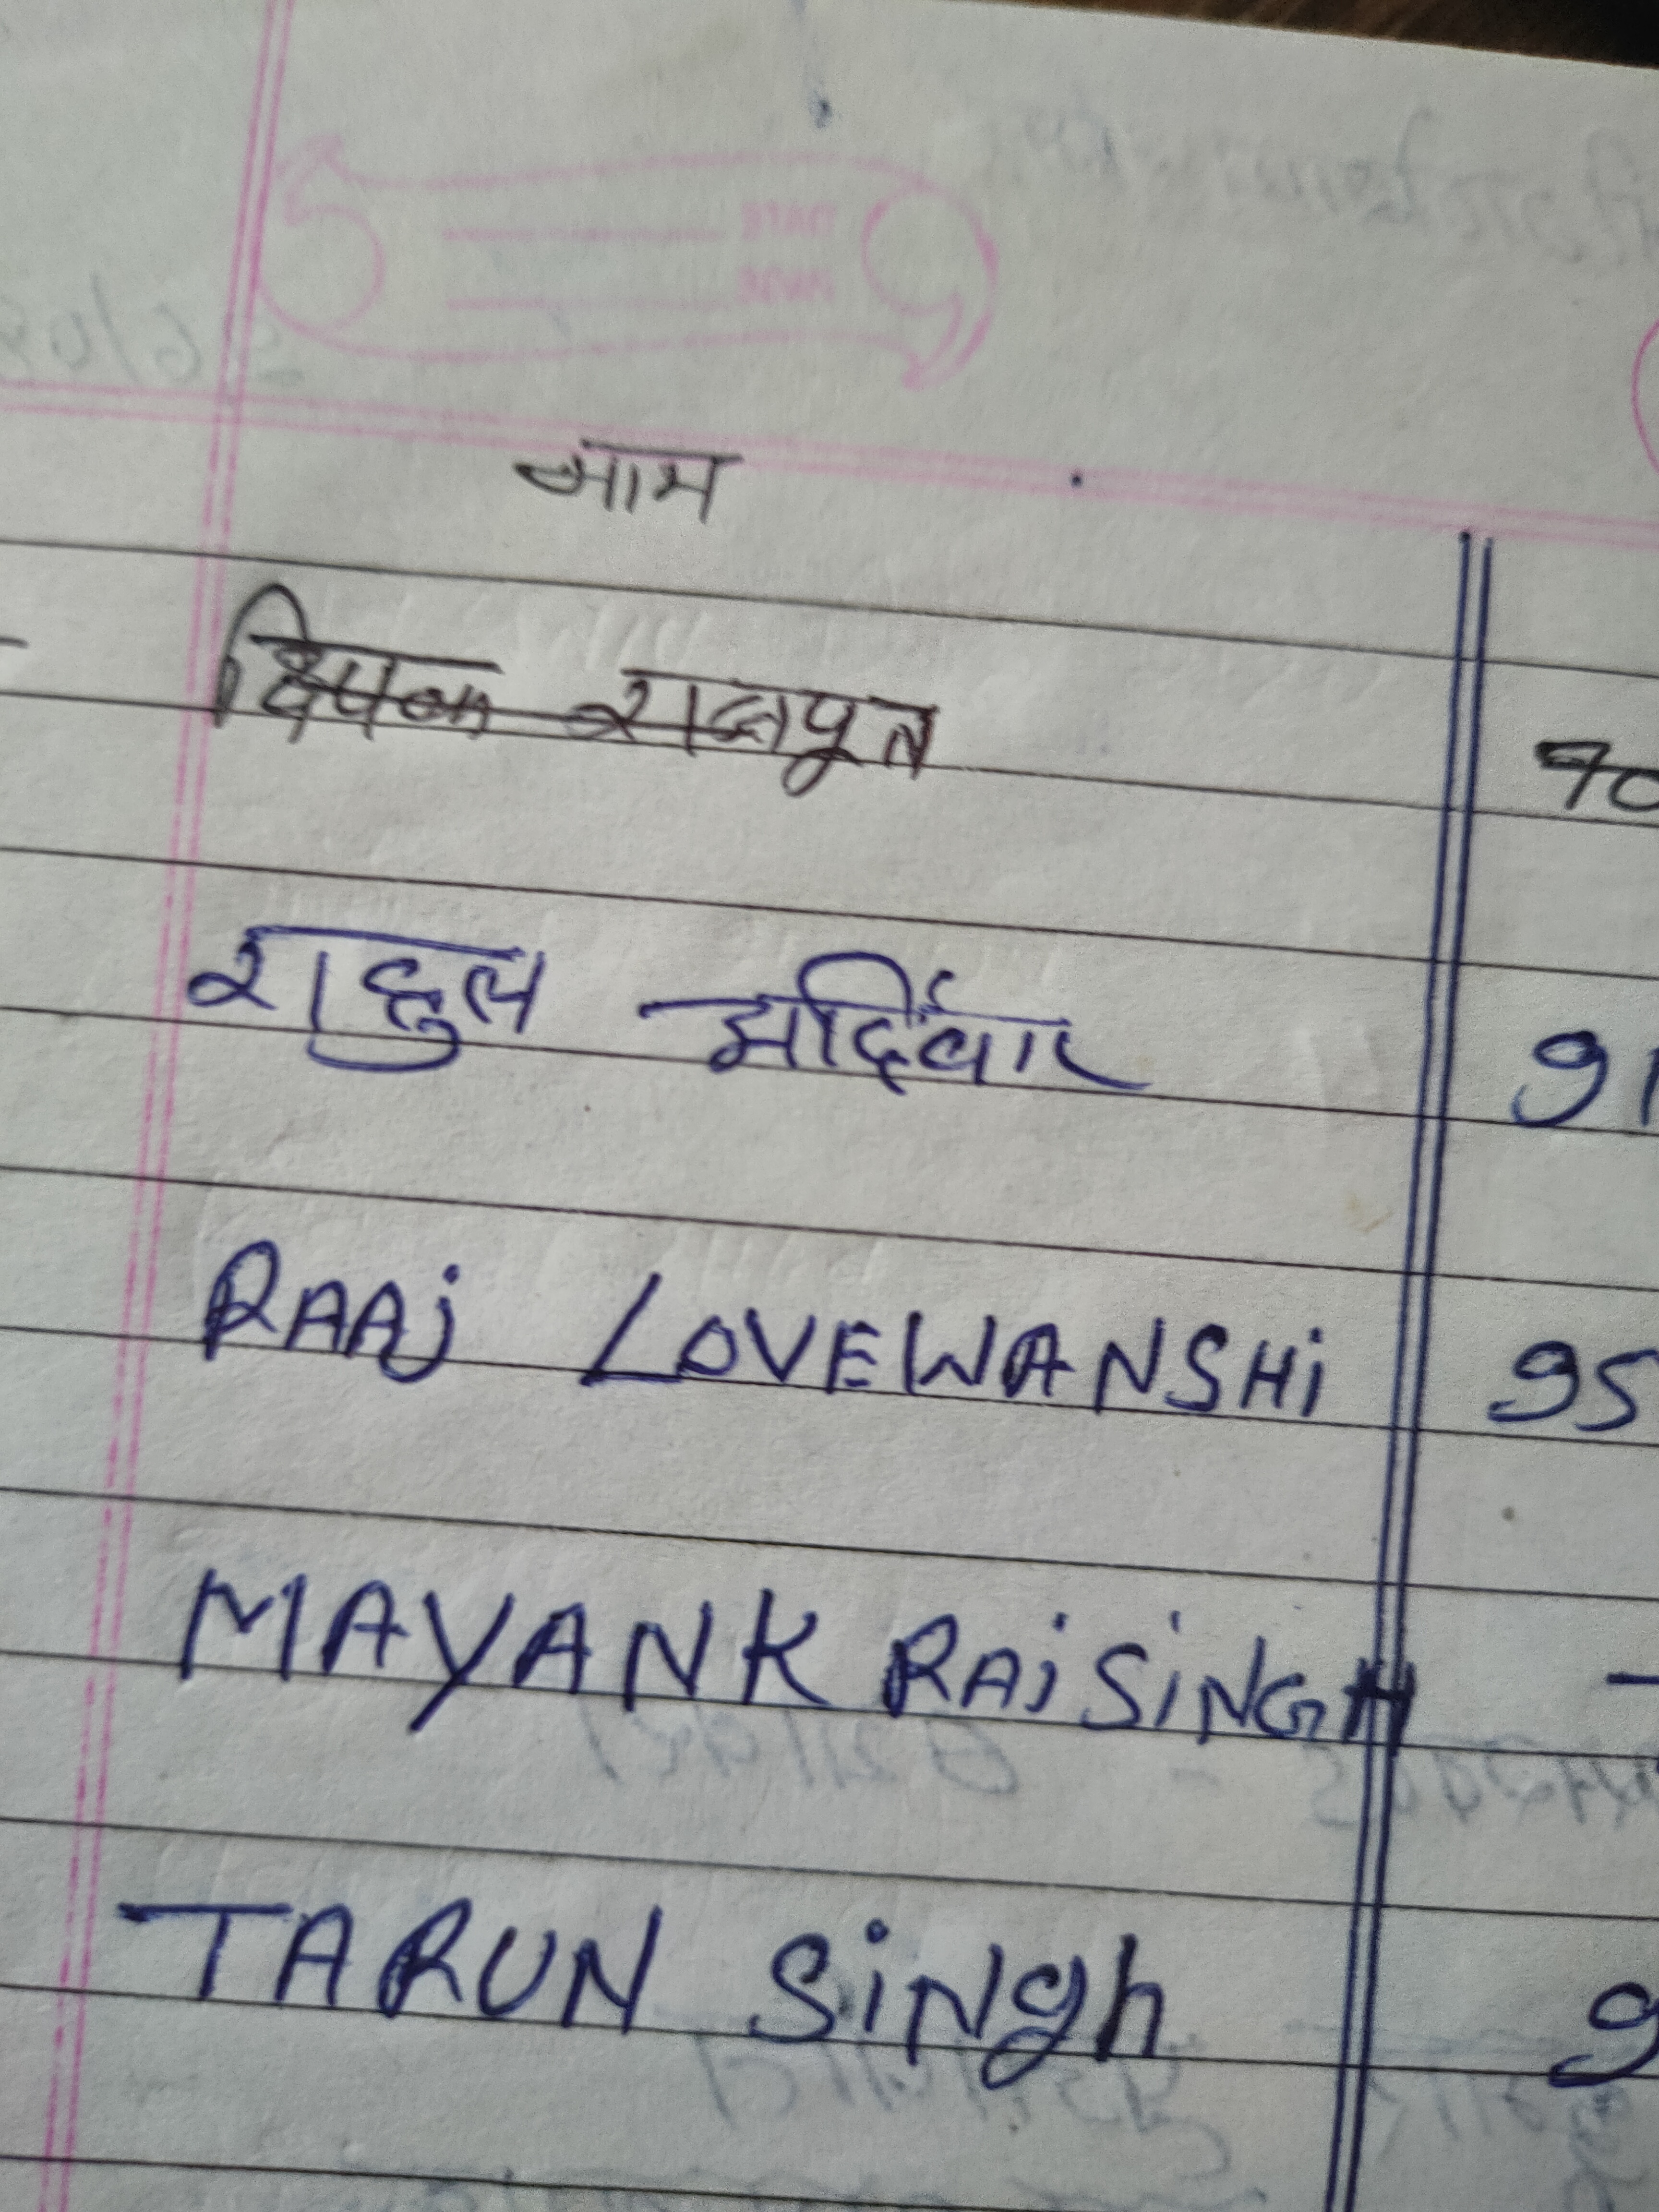 नाम
दिपक राजपूत 90
राहुल 91
RAAj LOVEWANSHi 95
MAYANK RAiSiNGH -
TARUN SiNgh 9